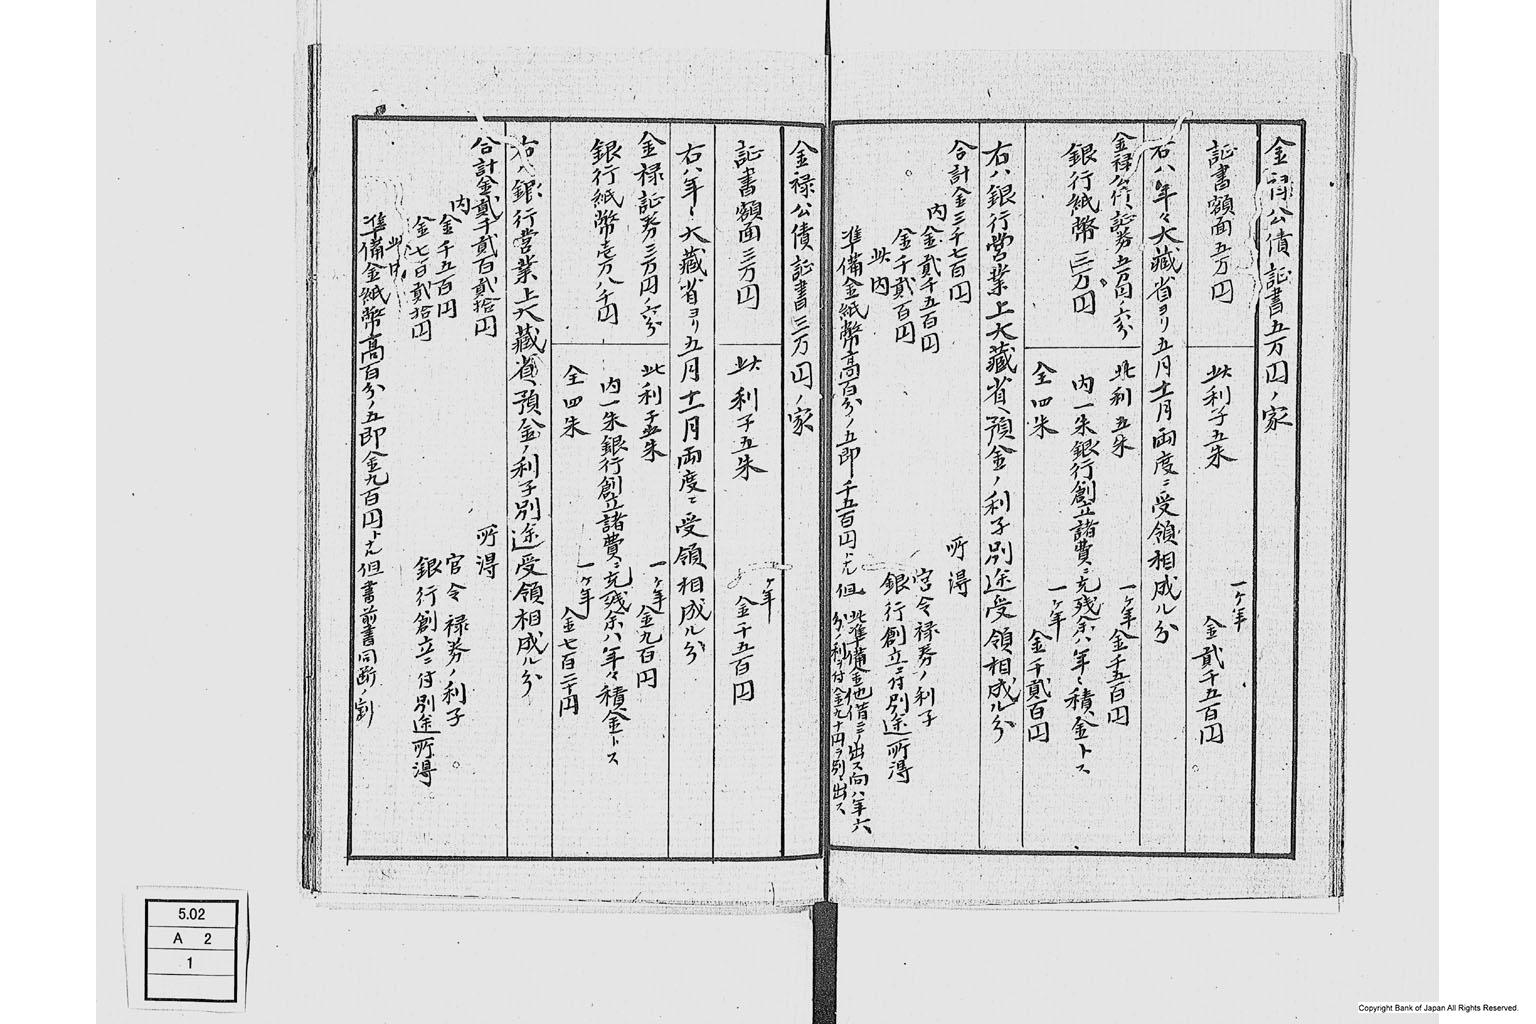 金禄公債証書五万円ノ家
証書額面五万円
此利子五朱
一ヶ年
金貳千五百円
右八年々大藏省ヨリ五月十一月両度ニ受領相成ル分
金禄公債証券五万円ノ六分
此利五朱
一ヶ年金千五百円
銀行紙幣三万円
内一朱銀行創立諸費ニ充残余ハ年々積金トス
仝四朱
一ヶ年
金千貳百円
右ハ銀行営業上大藏省ヘ預金ノ利子別途受領相成ル分
合計金三千七百円
所得
内金貳千五百円
官令禄券ノ利子
金千貳百円
銀行創立ニ付別途所得
此内
準備金紙幣高百分ノ五即千五百円
但
金禄公債証書三万円ノ家
証書額面三万円
此利子五朱
一ヶ年
金千五百円
右八年々大藏省ヨリ五月十一月両度ニ受領相成ル分
金禄証券三万円ノ六分
此利子五朱
一ヶ年金九百円
銀行紙幣壱万八千円
内一朱銀行創立諸費ニ充残余ハ年々積金トス
仝四朱
一ヶ年
金七百二十円
右ハ銀行営業上大藏省ヘ預金ノ利子別途受領相成ル分
合計金貳千貳百貳拾円
所得
内
金千五百円
官令禄券ノ利子
金七百貳拾円
銀行創立ニ付別途所得
此内
準備金紙幣高百分ノ五即金九百円
但書前書同断ノ割
5.02
A 2
1
Copyright Bank of Japan All Rights Reserved.